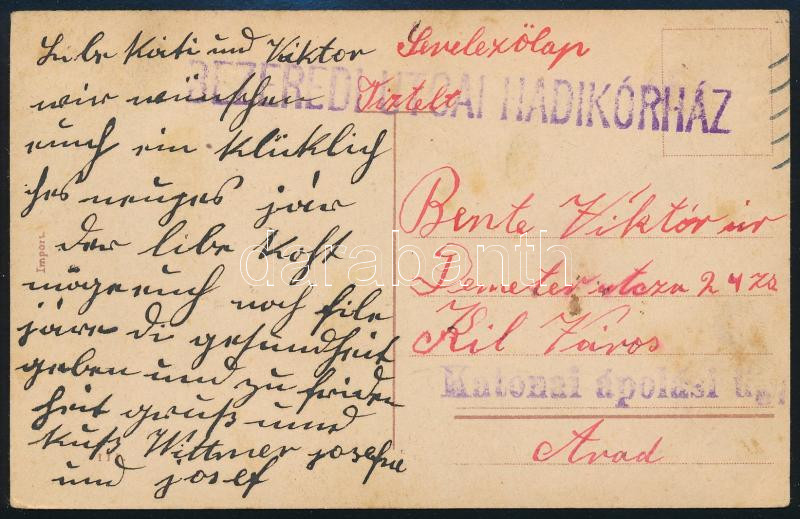 Libe Kati und Viktor
wir wünschen
euuch ein klücklich
ches neuges jár
der libe Koht
möge euch noch file
járe di gesundheit
geben und zu friden
heit gruß und
kuß Wittmer josefne
und josef
Import.
Levelezölap
BEZERÉDI UTCAI HADIKÓRHÁZ
Tiztelt
Bente Viktór úr
Demeter utcza 24 zs
Kil Város
Katonai ápolási ügy
Arad
darabanth